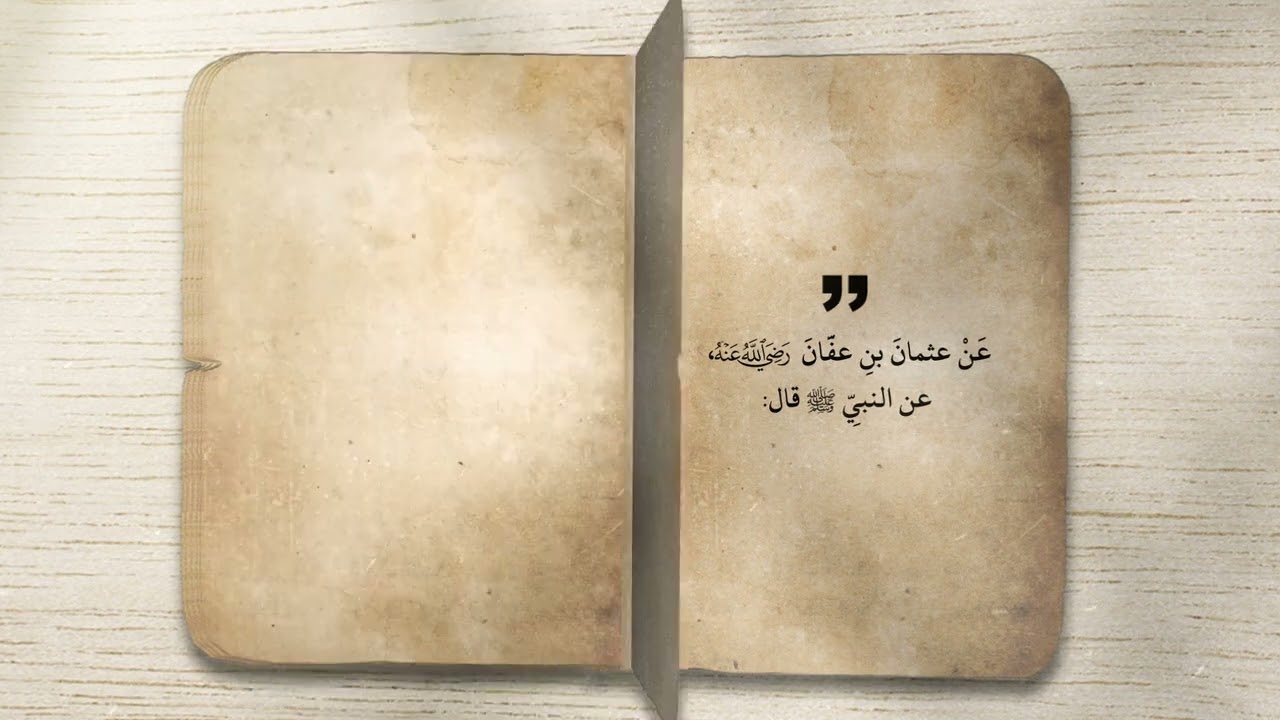 عَنْ عثمانَ بنِ عفّانَ رَضِيَ اللَّهُ عَنْهُ،
عن النبيِّ ﷺ قال: